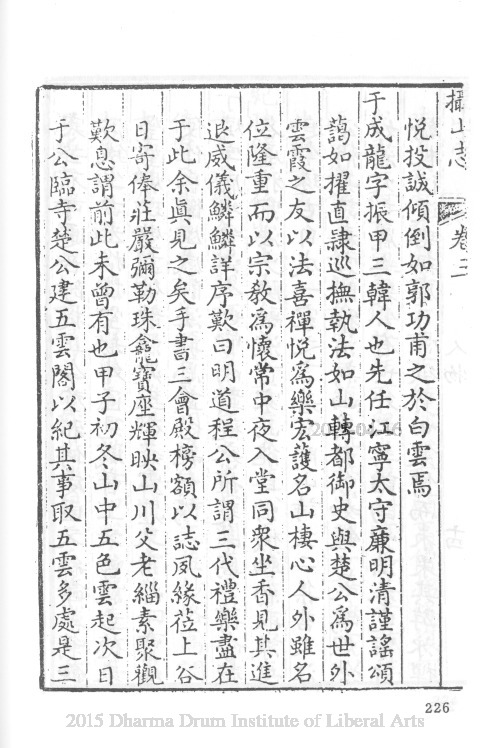 攝山志 卷三
悅投誠傾倒如郭功甫之於白雲焉
于成龍字振甲三韓人也先任江寧太守廉明清謹謠頌
藹如擢直隷巡撫執法如山轉都御史與楚公為世外
雲霞之友以法喜禪悅為樂宏護名山棲心人外雖名
位隆重而以宗敎為懷常中夜入堂同衆坐香見其進
退威儀鱗鱗詳序歎曰明道程公所謂三代禮樂盡在
于此余眞見之矣手書三會殿榜額以誌夙緣莅上谷
日寄俸莊嚴彌勒珠龕寶座輝映山川父老緇素聚觀
歎息謂前此未曾有也甲子初冬山中五色雲起次日
于公臨寺楚公建五雲閣以紀其事取五雲多處是三
226
2015 Dharma Drum Institute of Liberal Arts